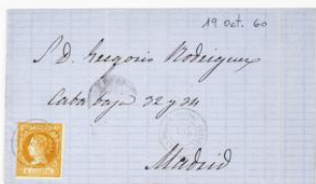 19 Oct. 60
S. D. Gregorio Rodriguez
Caba baja 32 y 34
Madrid